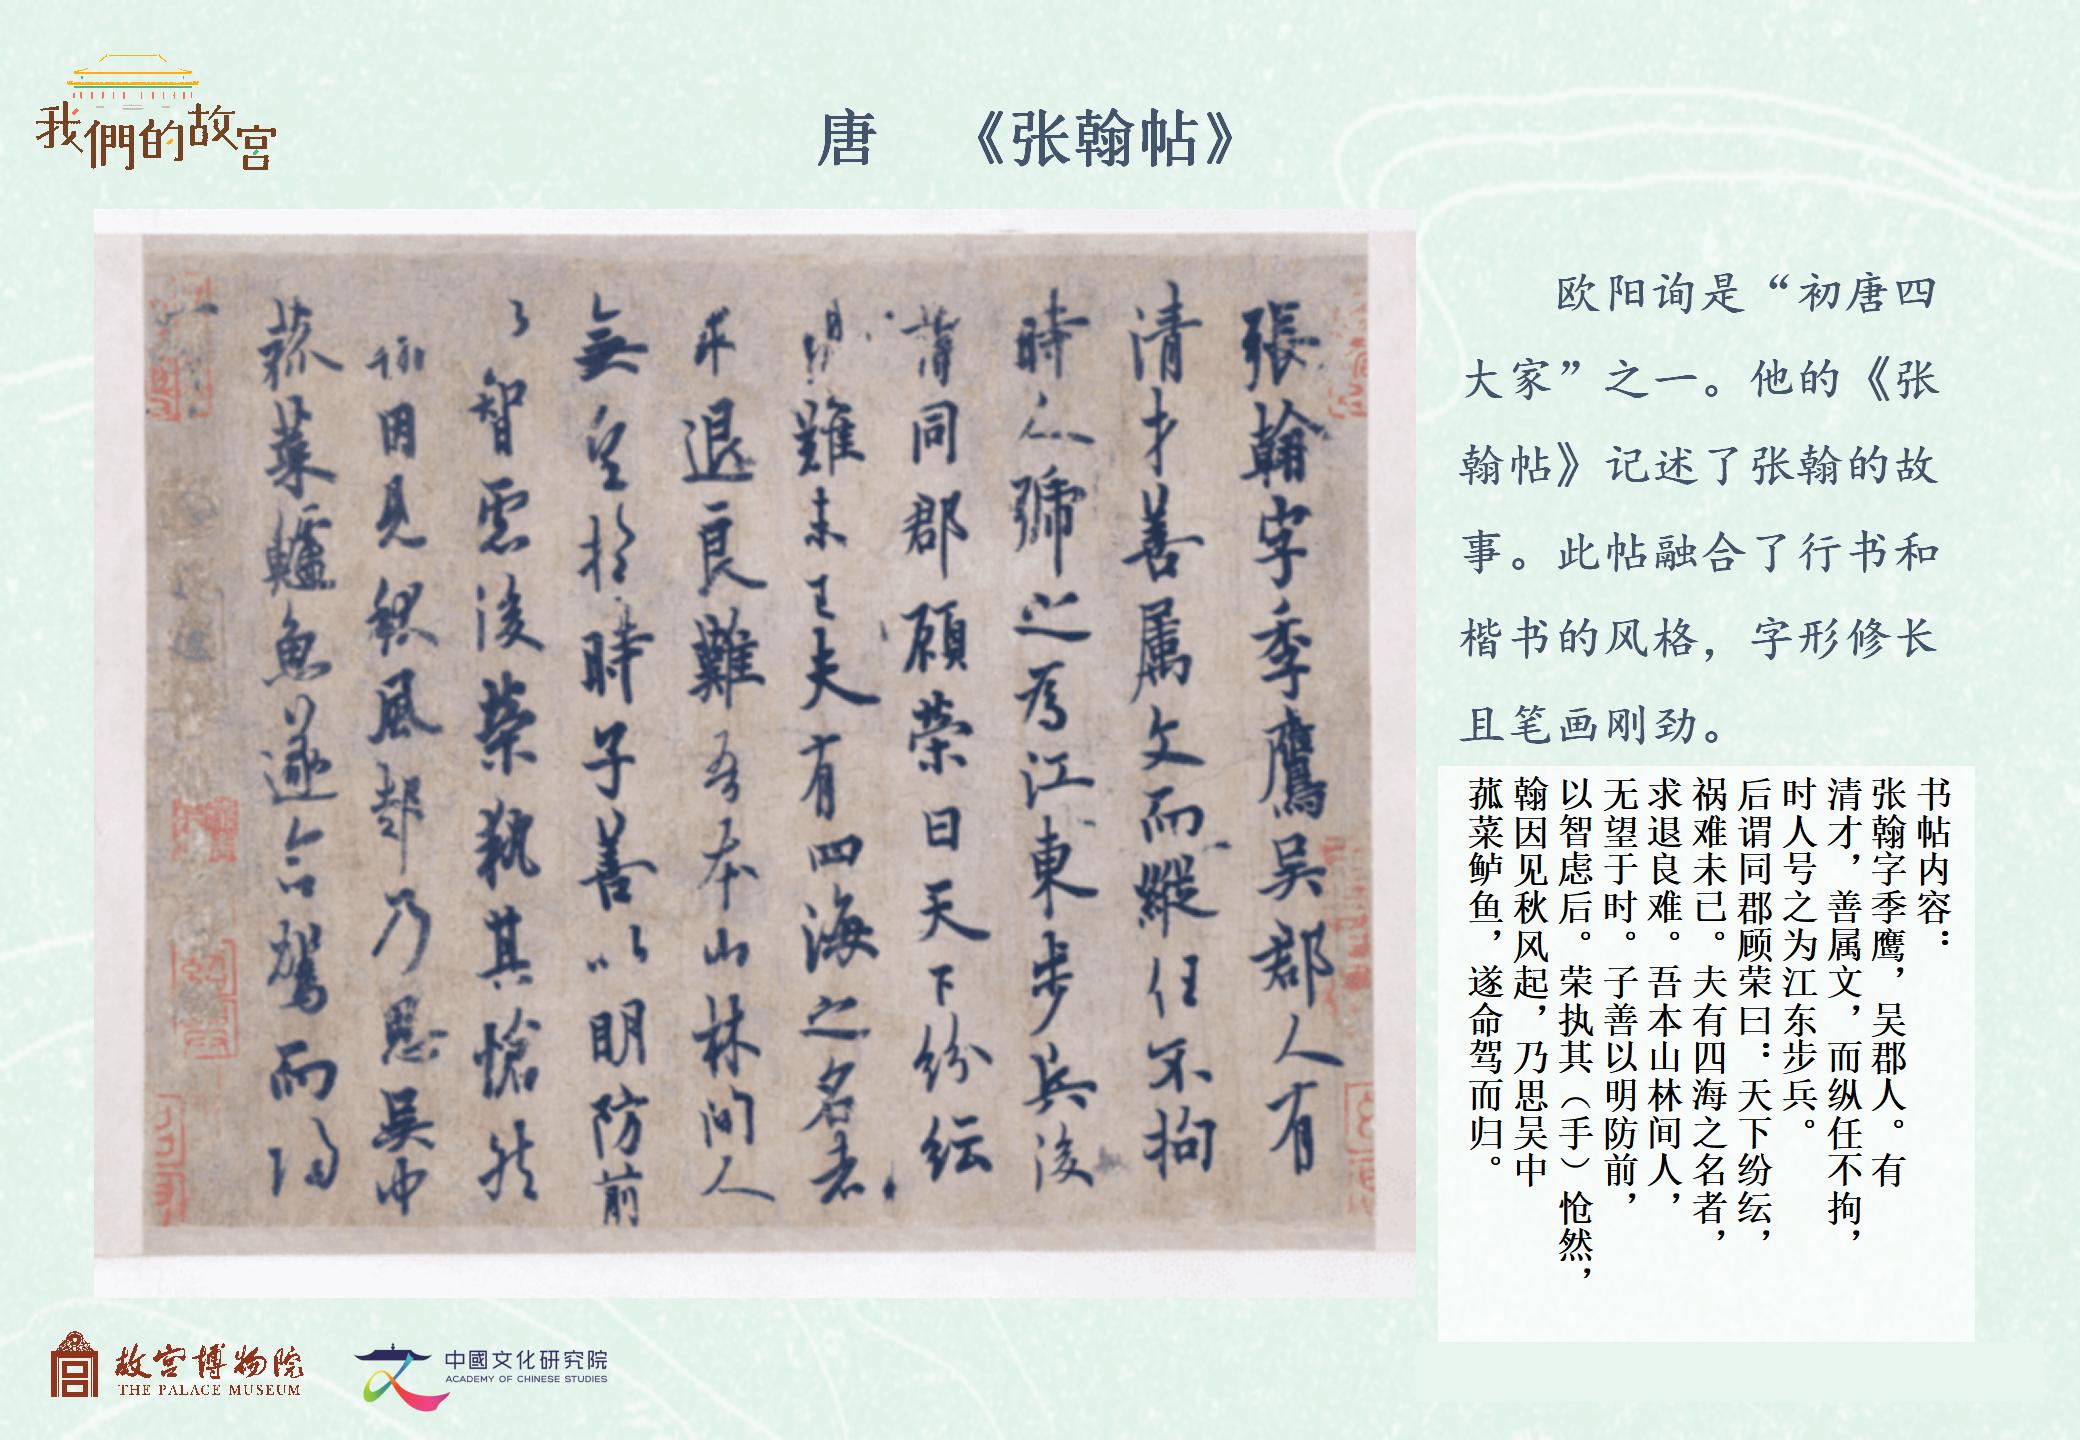 我們的故宮
唐 《张翰帖》
張翰字季鷹吴郡人有
清才善属文而縱任不拘
時人號之為江東步兵後
謂同郡顧榮曰天下紛紜
禍難未已夫有四海之名者
求退良難吾本山林間人
無望於時子善以明防前
以智慮後榮執其愴然
翰因見秋風起乃思吴中
菰菜鱸魚遂命駕而歸
欧阳询是“初唐四
大家”之一。他的《张
翰帖》记述了张翰的故
事。此帖融合了行书和
楷书的风格，字形修长
且笔画刚劲。
书帖内容：
张翰字季鹰，吴郡人。有
清才，善属文，而纵任不拘，
时人号之为江东步兵。
后谓同郡顾荣曰：天下纷纭，
祸难未已。夫有四海之名者，
求退良难。吾本山林间人，
无望于时。子善以明防前，
以智虑后。荣执其（手）怆然，
翰因见秋风起，乃思吴中
菰菜鲈鱼，遂命驾而归。
故宫博物院
THE PALACE MUSEUM
中國文化研究院
ACADEMY OF CHINESE STUDIES